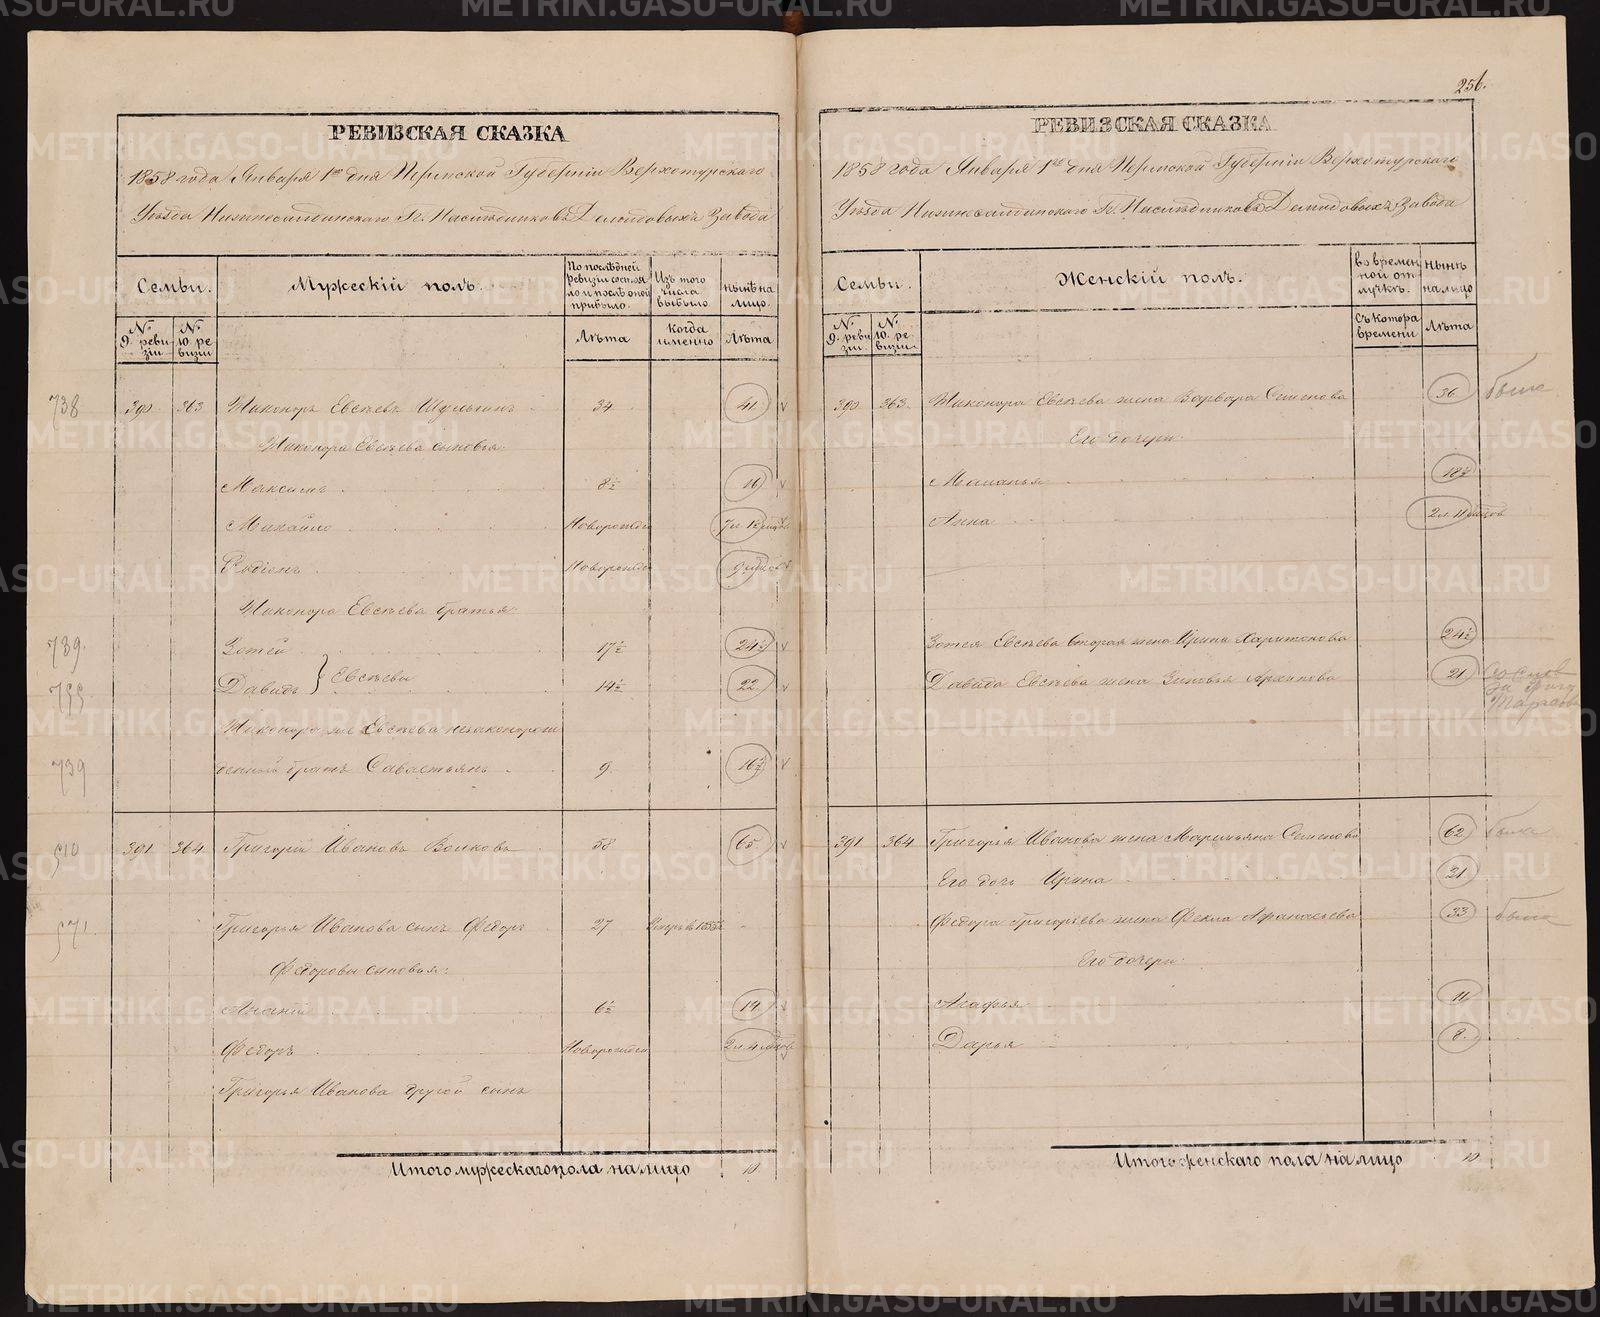 256.
РЕВИЗСКАЯ СКАЗКА
1858 года Января 1го дня Пермской Губернiи Верхотурскаго
Уѣзда Нижнесалдинскаго Гг. Наслѣдниковъ Демидовыхъ Завода
Семьи.
Мужескiй полъ.
По послѣдней ревизiи состояло и послѣ оной прибыло.
Изъ того числа выбыло
нынѣ на лицо.
№ 9. ревизiи
№ 10. ревизiи
Лѣта
когда именно
Лѣта
738 390 363 Никоноръ Евсѣевъ Шульгинъ 34 41
Никонора Евсѣева сыновья:
Максимъ 8½ 16
Михайло Новорожден
Родiонъ Новорожден
Никонора Евсѣева братья:
739. Зотей 17½ 24½
Давидъ } Евсѣевы 14½ 22
Никонора же Евсѣева незаконорож
739 денный братъ Савастьянъ 9. 16½
391 364 Григорiй Ивановъ Волковъ 58 65
Григорья Иванова сынъ Федоръ 27
Федоровы сыновья:
6½ 14
Федоръ Новорожден
Григорья Иванова другой сынъ
Итого мужескаго пола на лицо 10
РЕВИЗСКАЯ СКАЗКА
1858 года Января 1го дня Пермской Губернiи Верхотурскаго
Уѣзда Нижнесалдинскаго Гг. Наслѣдниковъ Демидовыхъ Завода
Семьи.
Женскiй полъ.
во временной отлучкѣ.
нынѣ на лицо
№ 9. ревизiи.
№ 10. ревизiи.
Съ котора времени
Лѣта
390 363. Никонора Евсѣева жена Варвара Семенова 36. была
Его дочери:
Маланья 18½
Анна 2 л. 11 мѣсяцов
Зотея Евсѣева вторая жена Ирина Харитонова 24½
Давида Евсѣева жена Зиновья Архипова 21
391 364 Григорья Иванова жена Маремьяна Семенова 62 была
Его дочь Ирина 21.
Федора Григорьева жена Фекла Афанасьева 33 была
Его дочери:
Агафья 11
Дарья 8.
Итого женскаго пола на лицо 10
METRIKI.GASO-URAL.RU